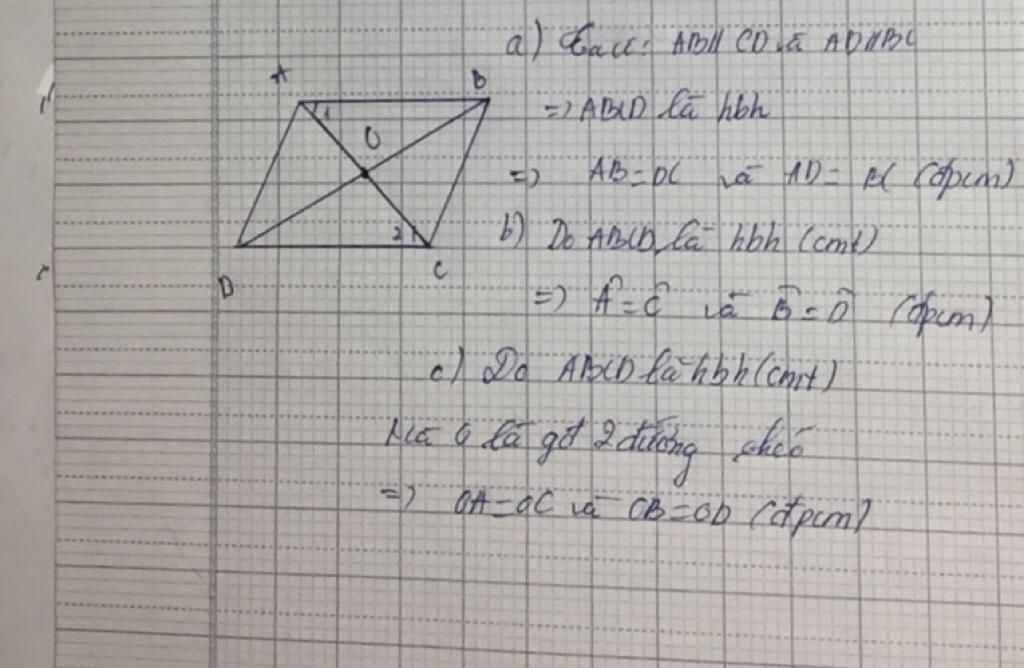 A
B
1
O
2
1
D
C
a) Ta có: AB // CD và AD // BC
=> ABCD là hbh
=> AB = DC và AD = BC (đpcm)
b) Do ABCD là hbh (cmt)
=> Â = Ĉ và B̂ = D̂ (đpcm)
c) Do ABCD là hbh (cmt)
Mà O là gđ 2 đường chéo
=> OA = OC và OB = OD (đpcm)